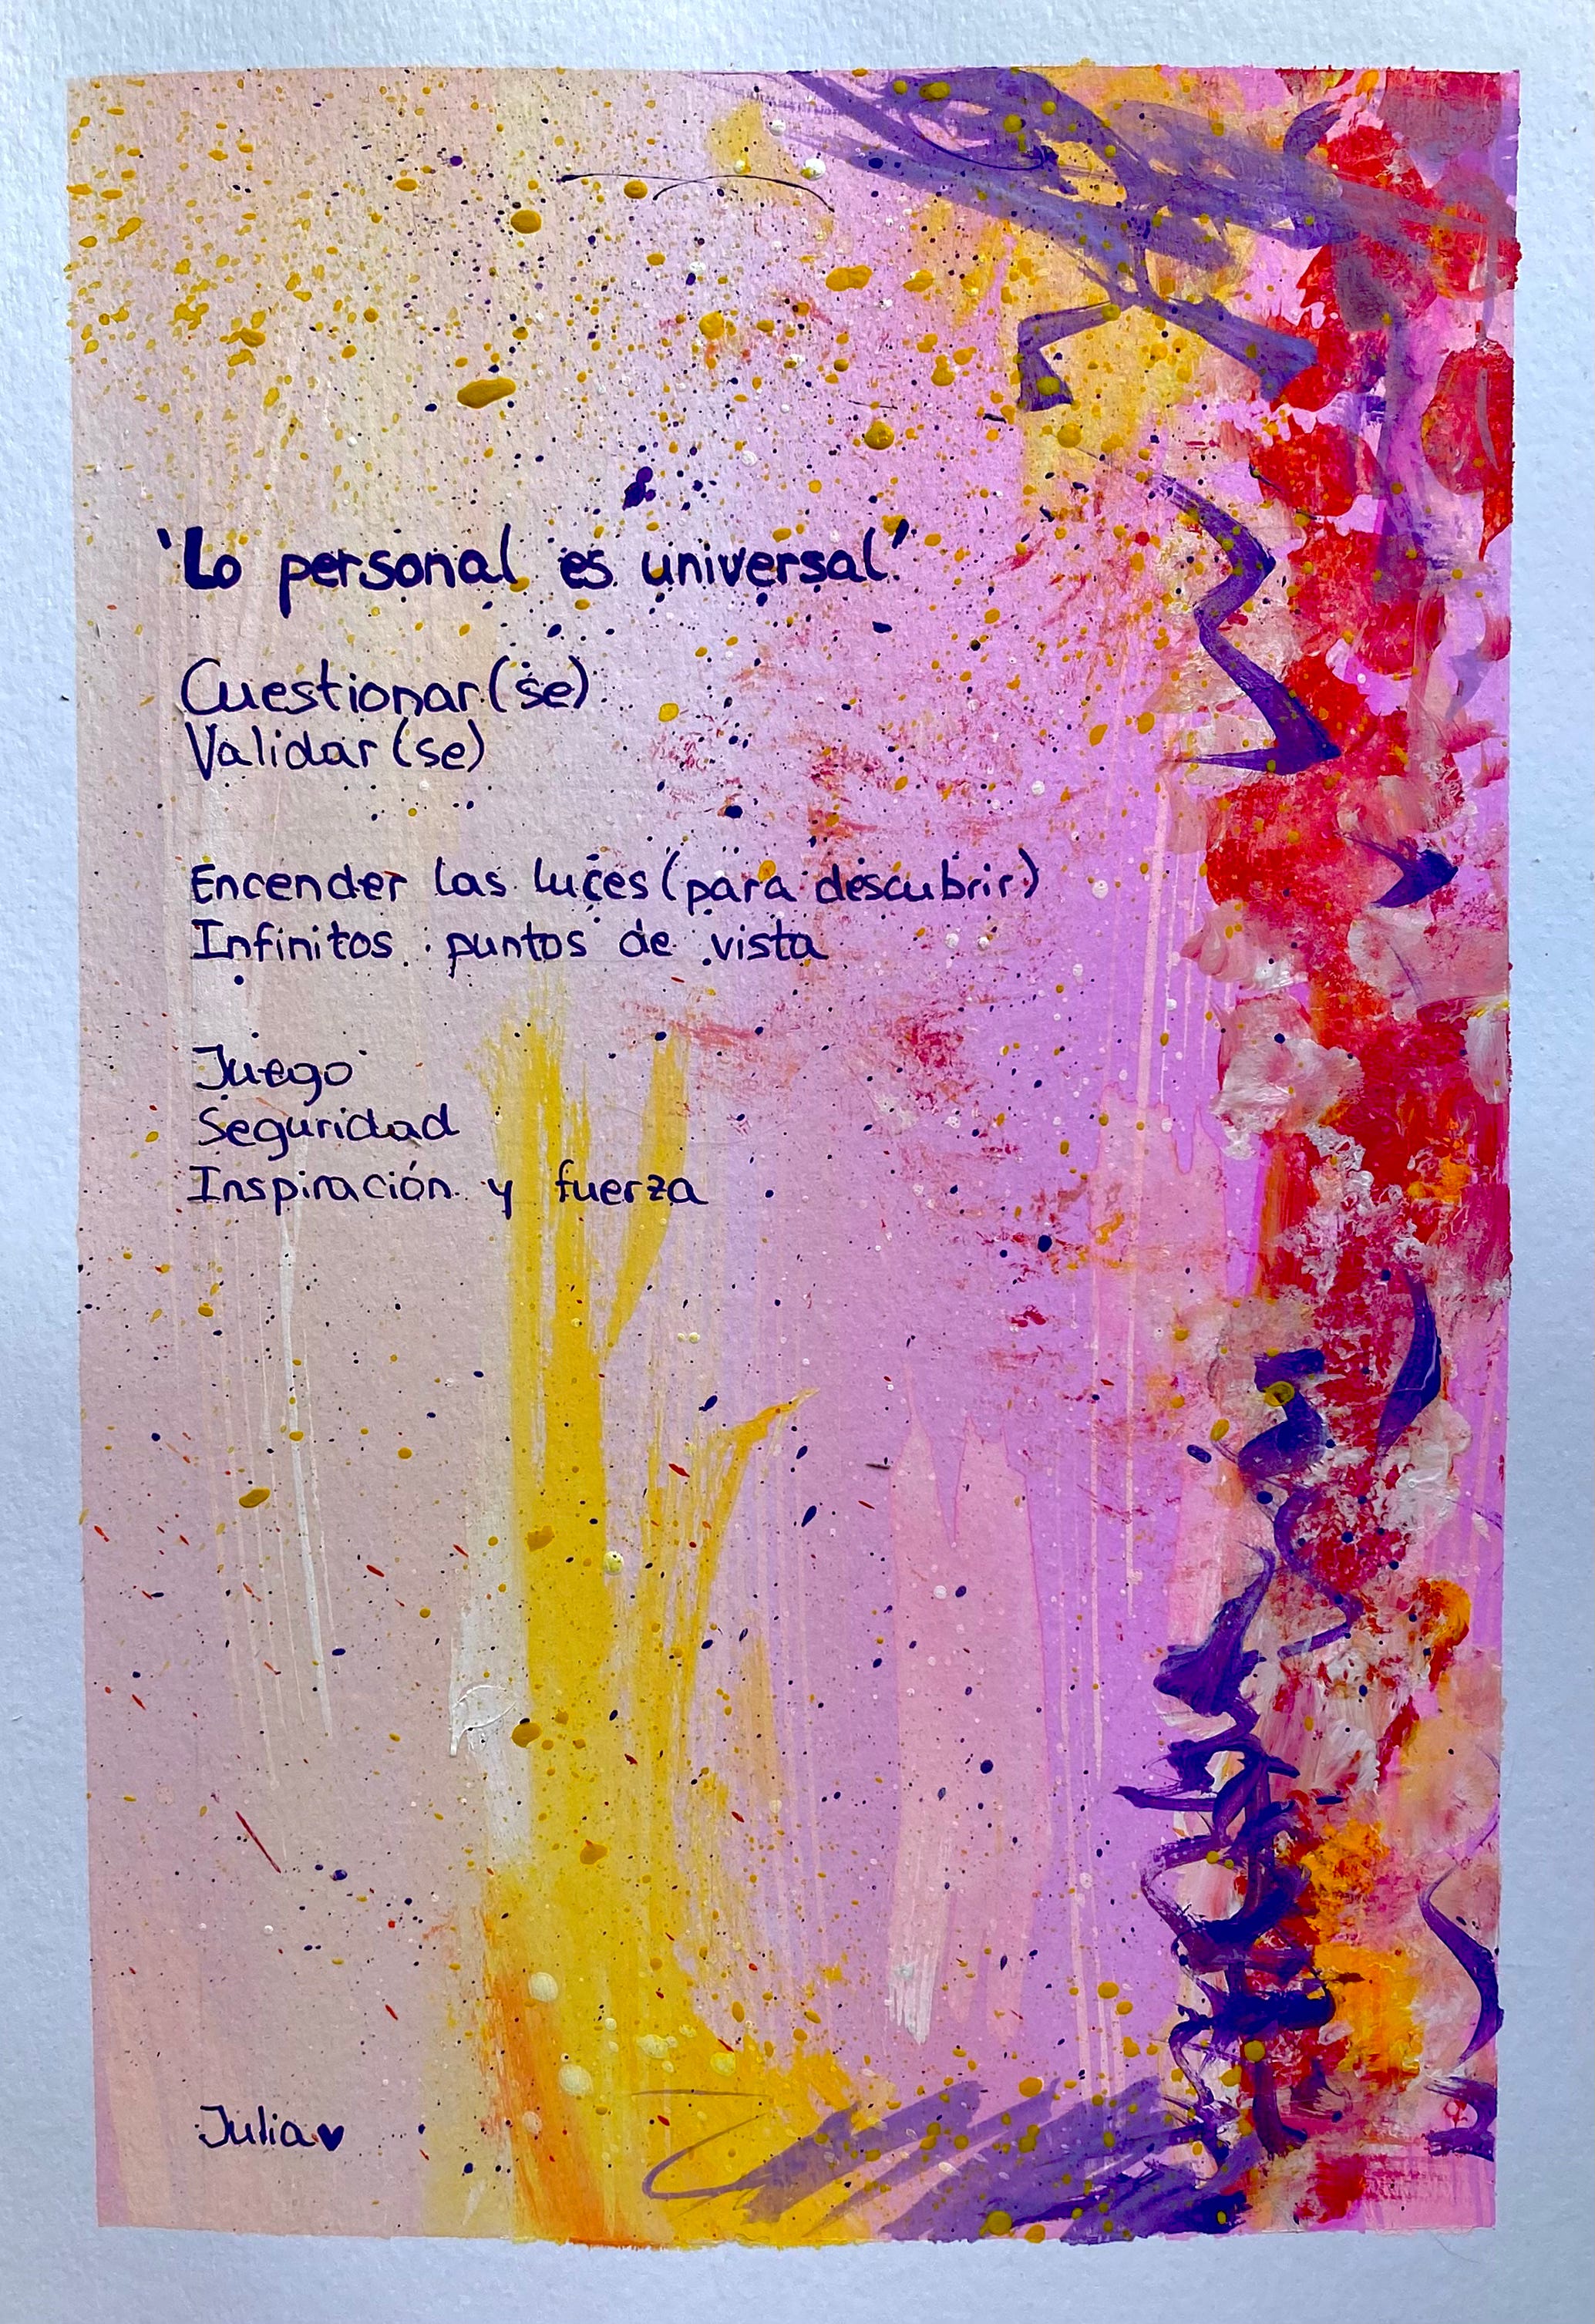 'Lo personal es universal'
Cuestionar(se)
Validar(se)
Encender las luces (para descubrir)
Infinitos puntos de vista
Juego
Seguridad
Inspiración y fuerza
Julia♥